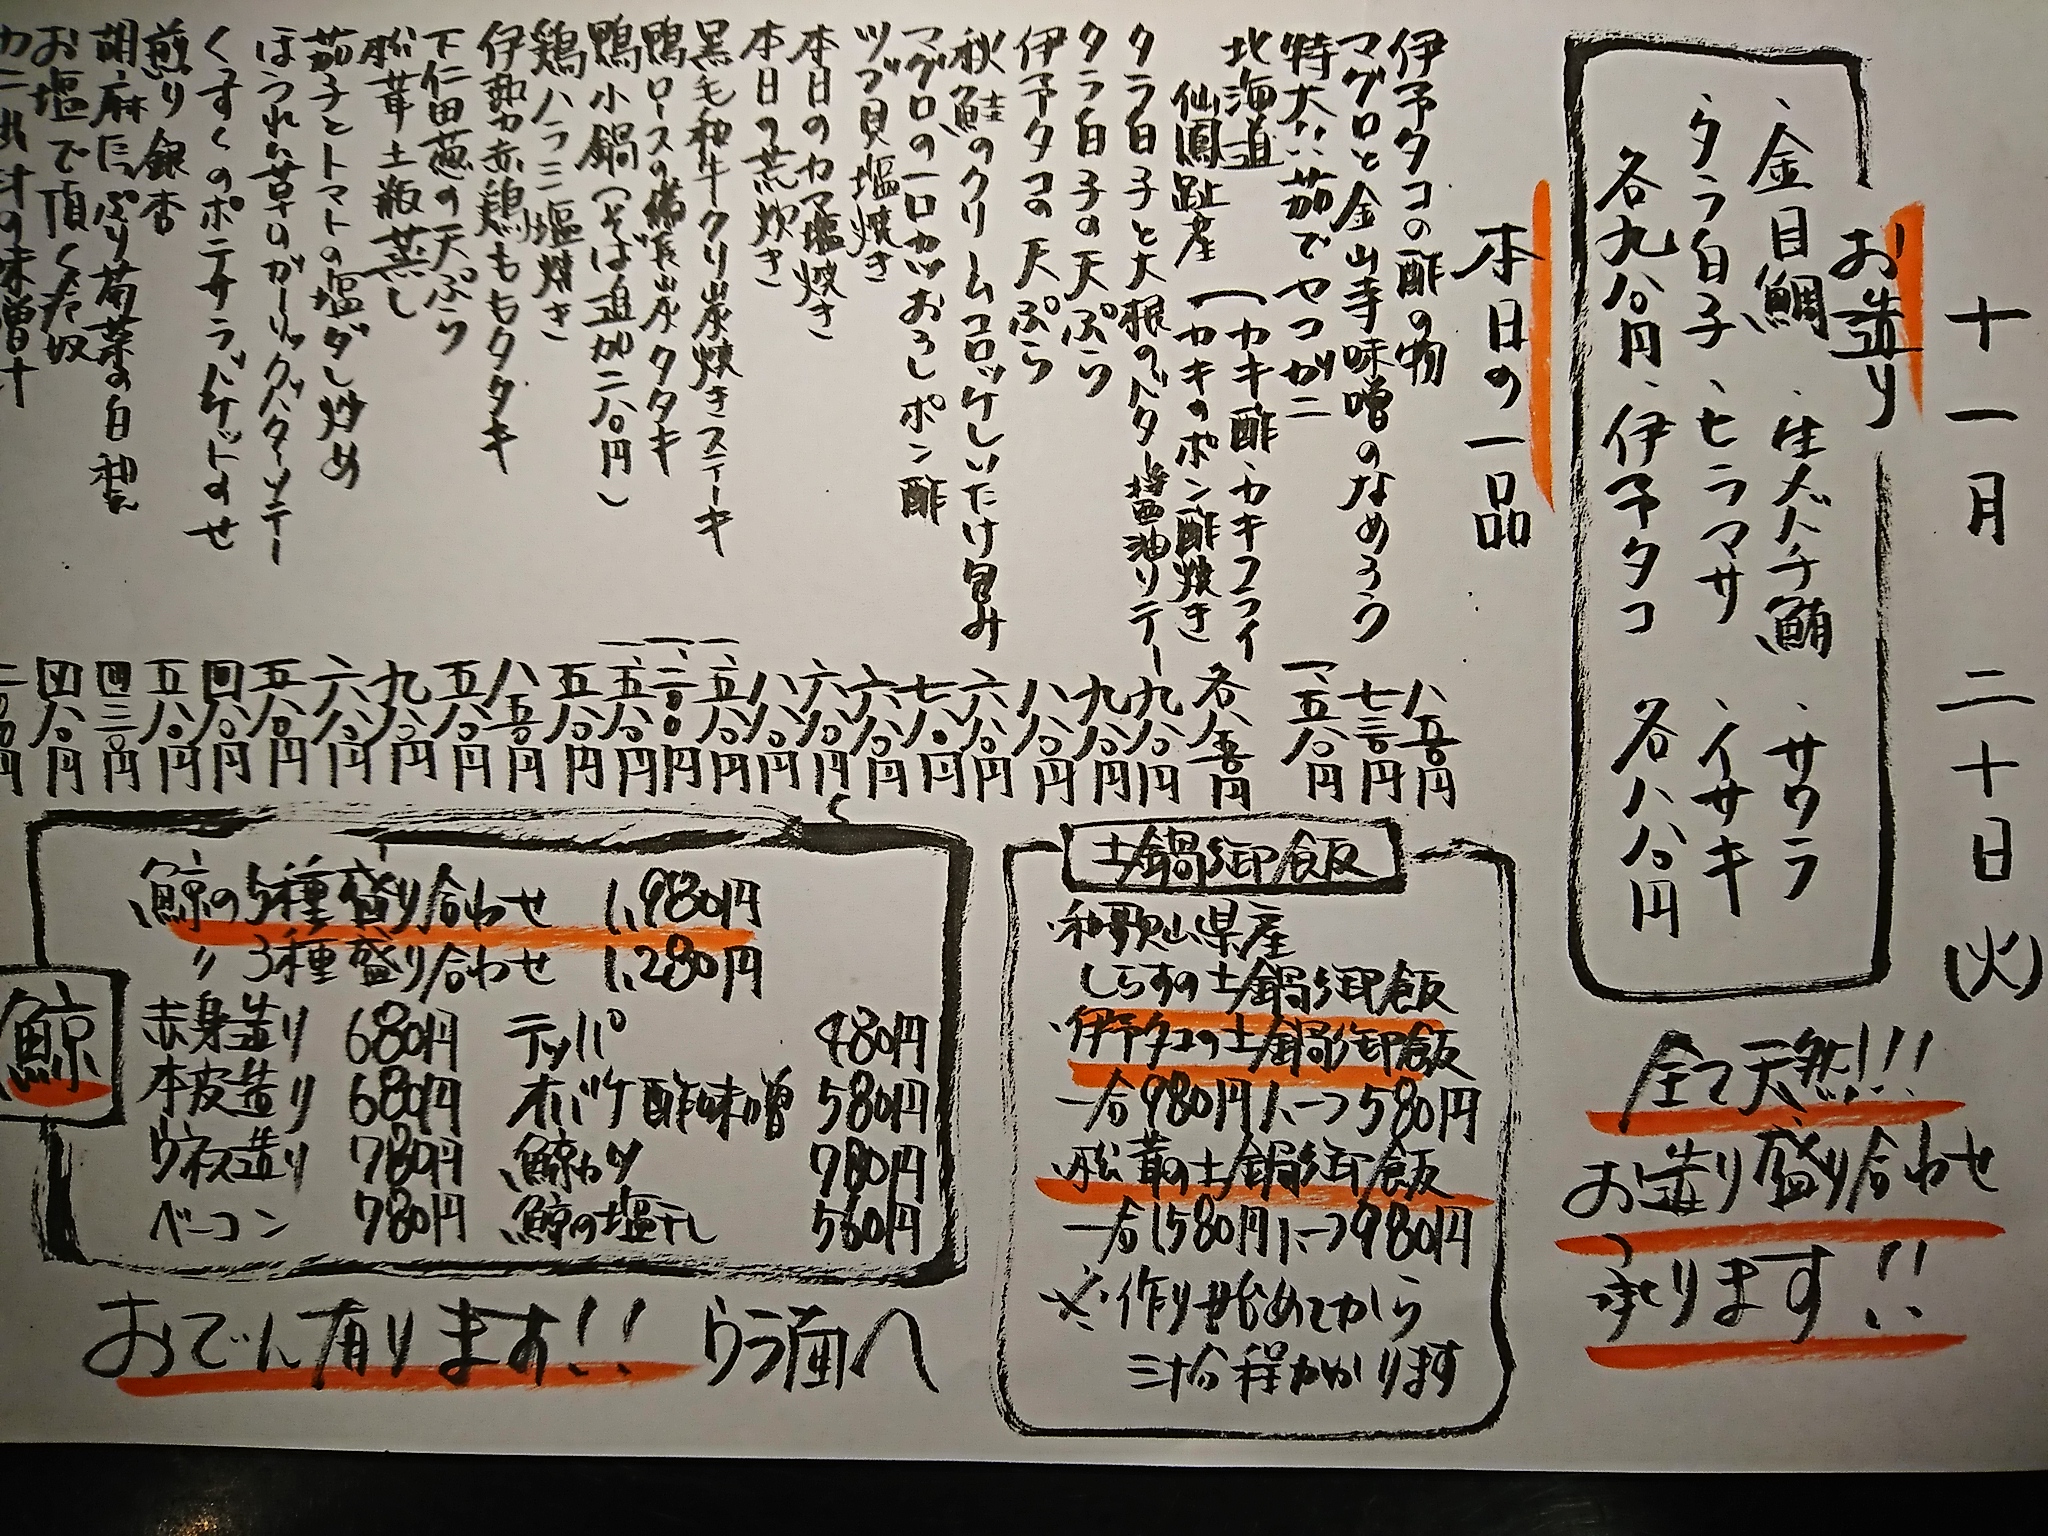 十一月 二十日(火)
お造り
・金目鯛 ・生メバチ鮪 ・サワラ
・タラ白子 ・ヒラマサ ・イサキ
各九八〇円 ・伊予タコ 各八八〇円
全て天然!!!
お造り盛り合わせ
承ります!!
本日の一品
伊予タコの酢の物 八五〇円
マグロと金山寺味噌のなめろう 七三〇円
特大!!茹でセコガニ 一、五八〇円
北海道 (カキ酢・カキフライ
仙鳳趾産 (カキのポン酢焼き 各八五〇円
タラ白子と大根のバター醤油ソテー 九八〇円
タラ白子の天ぷら 九八〇円
伊予タコの天ぷら 八八〇円
秋鮭のクリームコロッケしいたけ包み 六八〇円
マグロの一口カツおろしポン酢 七八〇円
ツブ貝塩焼き 六八〇円
本日のカマ塩焼き 六八〇円
本日の荒炊き 八八〇円
黒毛和牛クリ炭焼きステーキ 一、五八〇円
鴨ロースの備長炭タタキ 一、二〇〇円
鴨小鍋(そば追加二八〇円) 一、五八〇円
鶏ハラミ塩焼き 五八〇円
伊勢赤鶏ももタタキ 八五〇円
下仁田葱の天ぷら 五八〇円
松茸土瓶蒸し 九八〇円
茄子とトマトの塩ダレ炒め 六八〇円
ほうれん草のガーリックバターソテー 五八〇円
くずくのポテサラバゲットのせ 四八〇円
煎り銀杏 五八〇円
胡麻たっぷり菊菜の白和え 四三〇円
お塩で頂く枝豆 四八〇円
カニ出汁の味噌汁
土鍋御飯
・和歌山県産
しらすの土鍋御飯
・伊予タコの土鍋御飯
一合980円ハーフ580円
・松茸の土鍋御飯
一合1580円ハーフ980円
※作り始めてから
三十分程かかります
鯨
・鯨の5種盛り合わせ 1,980円
〃 3種盛り合わせ 1,280円
赤身造り 680円 テッパ 480円
本皮造り 680円 オバケ酢味噌 580円
ウネス造り 780円 鯨カツ 780円
ベーコン 780円 鯨の塩干し 560円
おでん有ります!! ウラ面へ